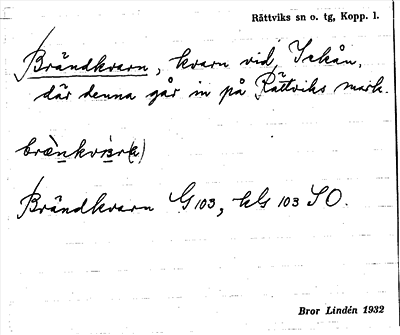 Rättviks sn o. tg, Kopp. l.
Brändkvarn, kvarn vid Ickån,
där denna går in på Rättviks mark.
Brändkvarn G 103, kls 103 SO.
Bror Lindén 1932